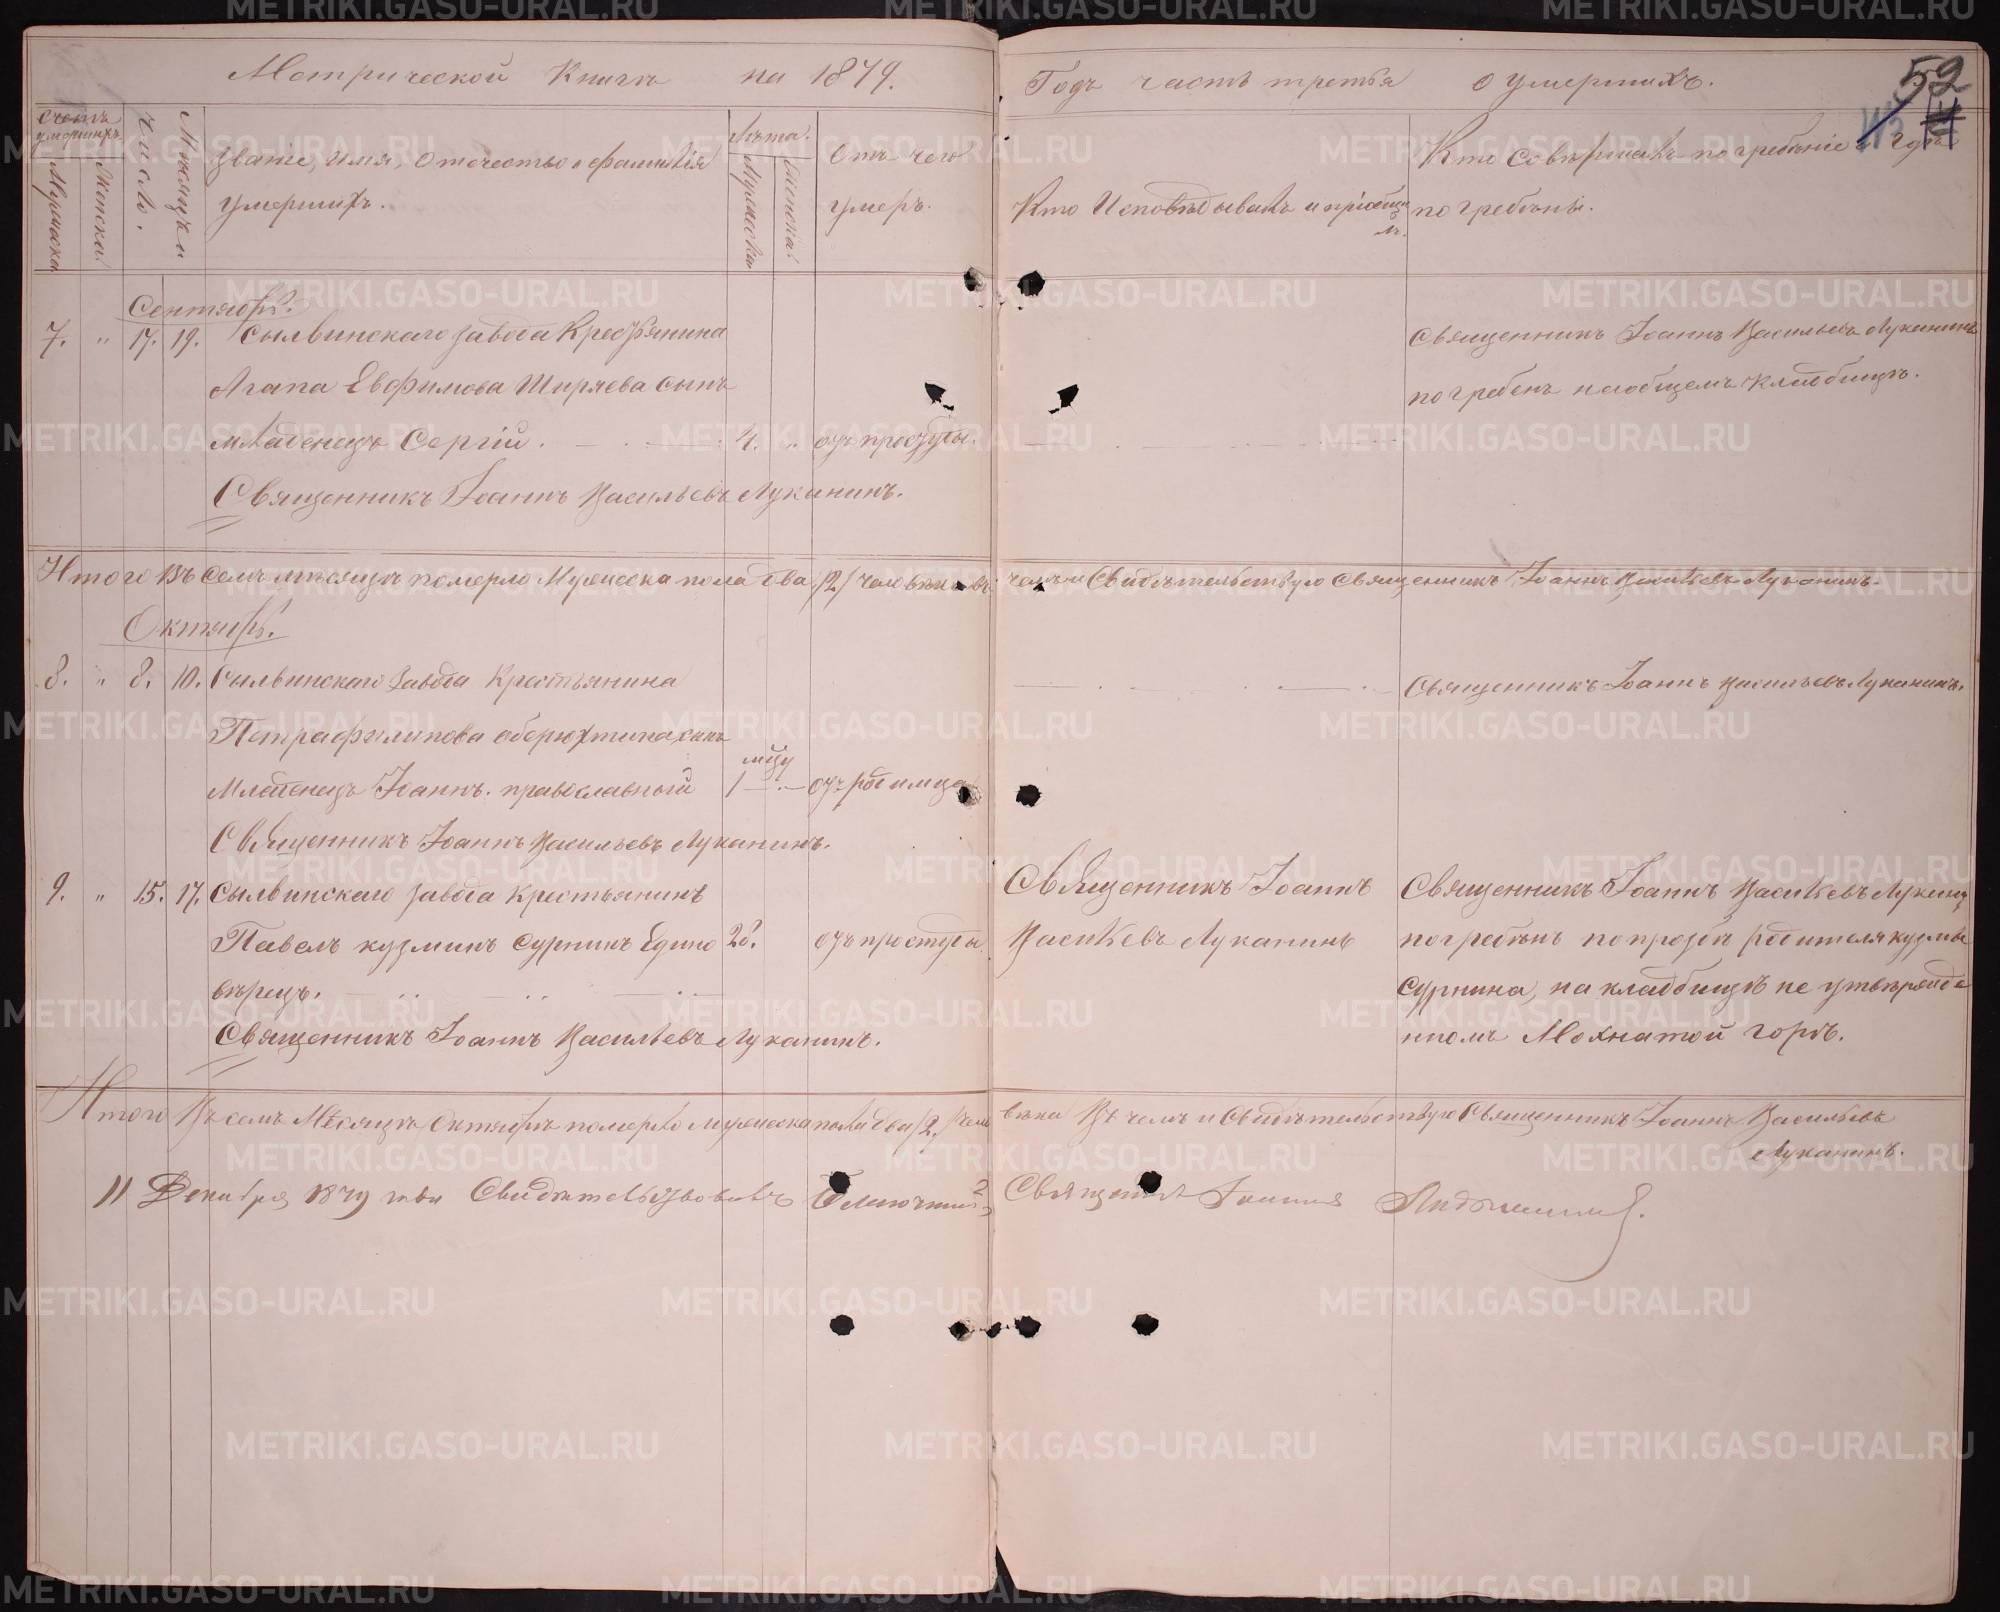 Метрической Книги на 1879.
Годъ часть третья о умершихъ.
52
Счетъ умершихъ.
Мужеска
Женска.
Число.
Мѣсяцъ и
Званіе, имя, отечество и фамилія
умершихъ.
Лѣта.
Мужеска
Женска.
Отъ чего
умеръ.
Кто Исповѣдывалъ и пріобщи
лъ.
Кто совершалъ погребеніе и гдѣ
погребены.
Сентябрь.
7. " 17. 19. Сылвинскаго завода Крестьянина
Агапа Евфимова Ширяева сынъ
младенецъ Сергій. 4. " отъ простуды.
Священникъ Іоаннъ Васильевъ Луканинъ
погребенъ на общемъ кладбищѣ.
Священникъ Іоаннъ Васильевъ Луканинъ.
Итого въ семъ мѣсяцѣ померло Мужеска пола два /2/ человѣка въ
чемъ и Свидѣтельствую Священникъ Іоаннъ Васильевъ Луканинъ.
Октябрь.
8. " 8. 10. Сылвинскаго завода Крестьянина
Петра Филипова Оберюхтина сынъ
Младенецъ Іоаннъ. православный 1 мцу отъ родимца
Священникъ Іоаннъ Васильевъ Луканинъ.
Священникъ Іоаннъ Васильевъ Луканинъ.
9. " 15. 17. Сылвинскаго завода крестьянинъ
Павелъ Кузминъ Сурнинъ Едино 28. отъ простуды
вѣрецъ.
Священникъ Іоаннъ Васильевъ Луканинъ.
Священникъ Іоаннъ
Васильевъ Луканинъ
Священникъ Іоаннъ Васильевъ Луканинъ
погребѣнъ по прозбѣ родителя кузмы
Сурнина, на кладбищѣ не утвѣржде
нномъ Мохнатой горѣ.
Итого Въ семъ Мѣсяцѣ Октябрѣ померло мужеска пола два /2./ чело
вѣка Въ чемъ и Свидѣтельствую Священникъ Іоаннъ Васильевъ
Луканинъ.
11 Декабря 1879 года Свидѣтельствовалъ Благочинный
Священникъ Іоаннъ
METRIKI.GASO-URAL.RU